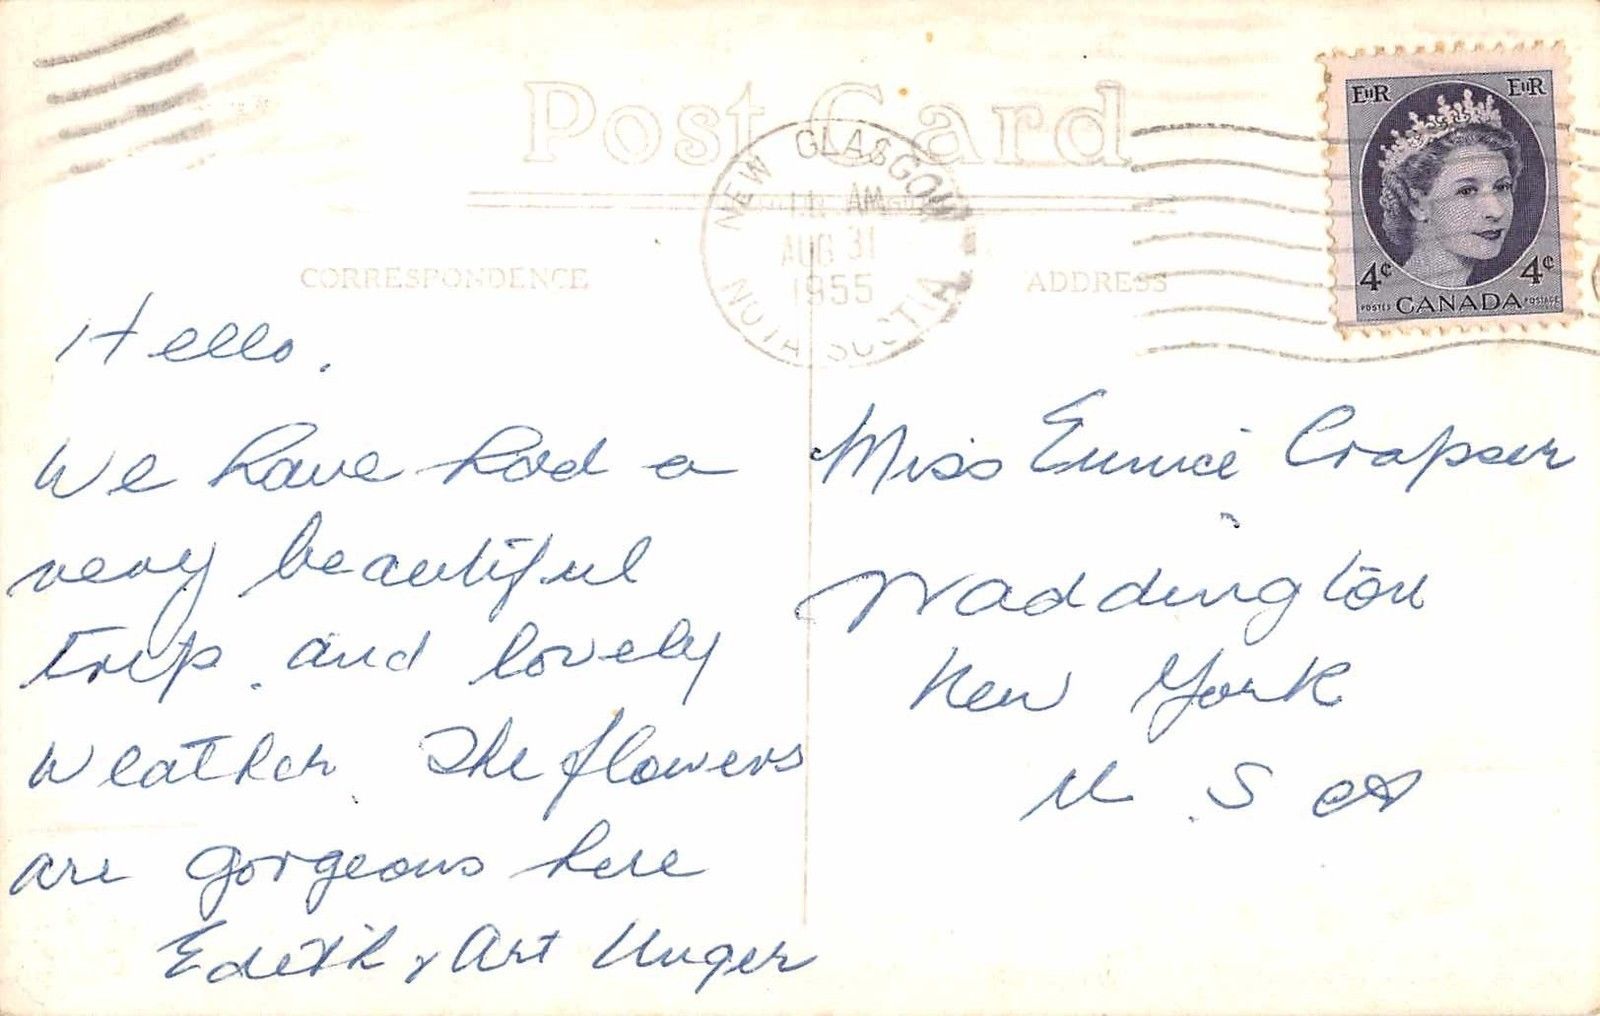 Post Card
NEW GLASGOW
AM
AUG 31
1955
NOVA SCOTIA
EIIR EIIR
4¢ 4¢
POSTES CANADA POSTAGE
CORRESPONDENCE
ADDRESS
Hello.
We have had a
very beautiful
trip. and lovely
weather. The flowers
are gorgeous here
Edith & Art Unger
Miss Eunice Crapser
Waddington
New York
U. S A